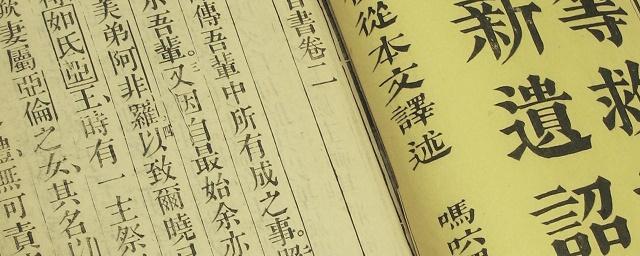 等救
新遺詔
從本文譯述
嗎
書卷二
傳吾輩中所有成之事。
吾輩。又因自最始余亦
美弟阿非羅以致爾曉
如氏亞王、時有一主祭
妻屬亞倫之女、其名
禮、無可責